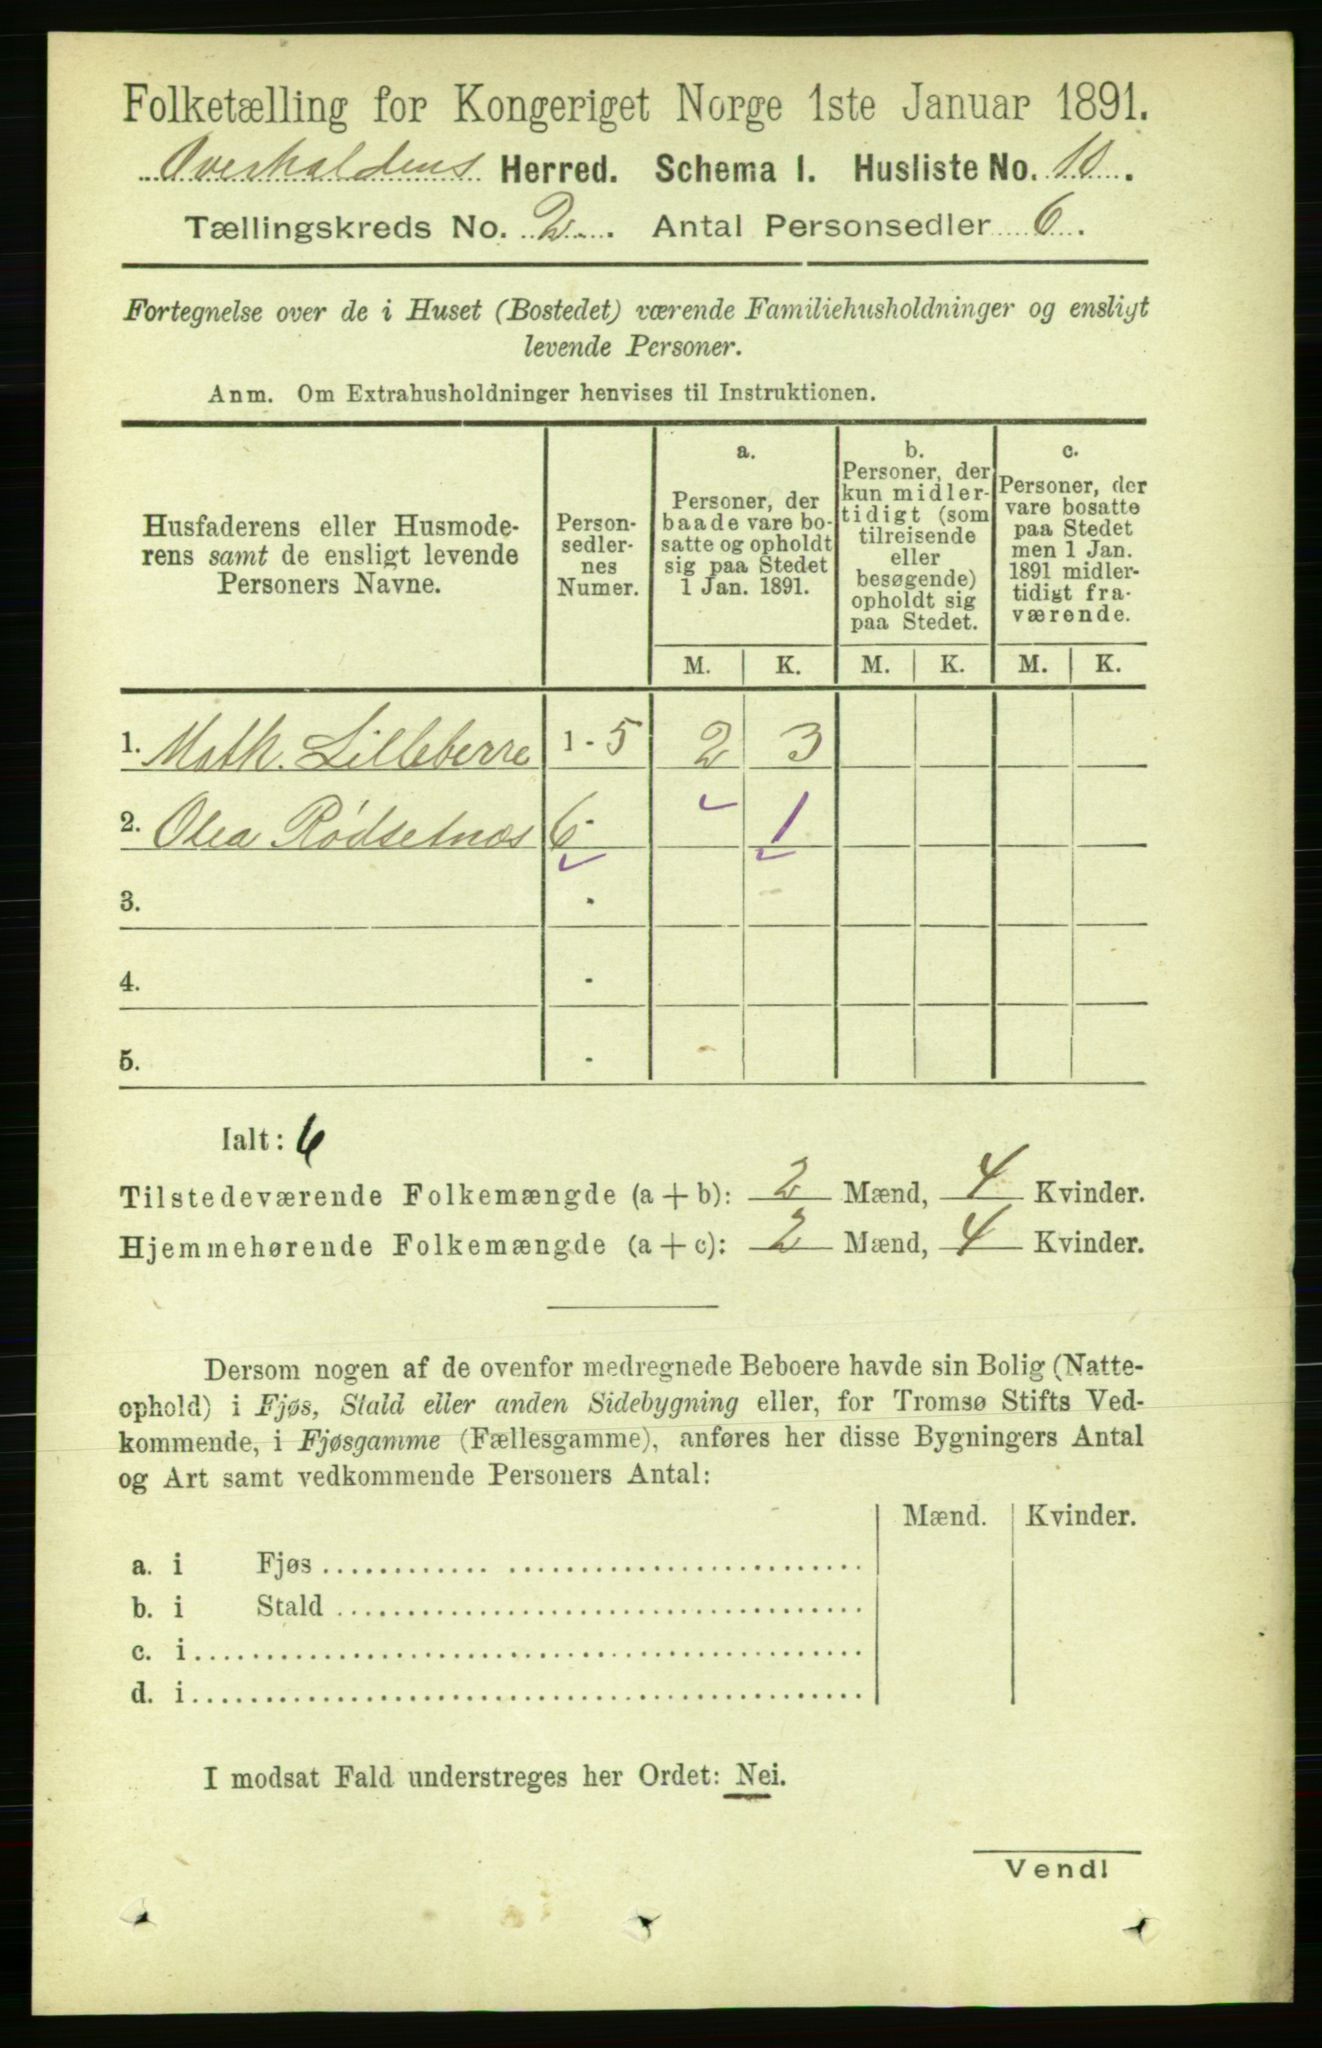 Folketælling for Kongeriget Norge 1ste Januar 1891.
Overhaldens Herred. Schema I. Husliste No. 10.
Tællingskreds No. 2. Antal Personsedler 6.
Fortegnelse over de i Huset (Bostedet) værende Familiehusholdninger og ensligt
levende Personer.
Anm. Om Extrahusholdninger henvises til Instruktionen.
Husfaderens eller Husmode-
rens samt de ensligt levende
Personers Navne.
Person-
sedler-
nes
Numer.
a.
Personer, der
baade vare bo-
satte og opholdt
sig paa Stedet
1 Jan. 1891.
b.
Personer, der
kun midler-
tidigt (som
tilreisende
eller
besøgende)
opholdt sig
paa Stedet.
c.
Personer, der
vare bosatte
paa Stedet
men 1 Jan.
1891 midler-
tidigt fra-
værende.
M. K. M. K. M. K.
1. Math. Lilleberre 1 - 5 2 3
2. Olea Rødsetnæs 6 - 1
3. -
4. -
5. -
Ialt: 6
Tilstedeværende Folkemængde (a + b): 2 Mænd, 4 Kvinder.
Hjemmehørende Folkemængde (a + c): 2 Mænd, 4 Kvinder.
Dersom nogen af de ovenfor medregnede Beboere havde sin Bolig (Natte-
ophold) i Fjøs, Stald eller anden Sidebygning eller, for Tromsø Stifts Ved-
kommende, i Fjøsgamme (Fællesgamme), anføres her disse Bygningers Antal
og Art samt vedkommende Personers Antal:
Mænd. Kvinder.
a. i Fjøs
b. i Stald
c. i
d. i
I modsat Fald understreges her Ordet: Nei.
Vend!